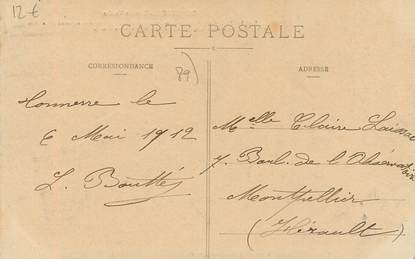 12 €
CARTE POSTALE
CORRESPONDANCE
ADRESSE
89)
Tonnerre le
6 Mai 1912
L. Bouttés
Melle Claire
7. Boul. de l'Observatoire
Montpellier
(Hérault)